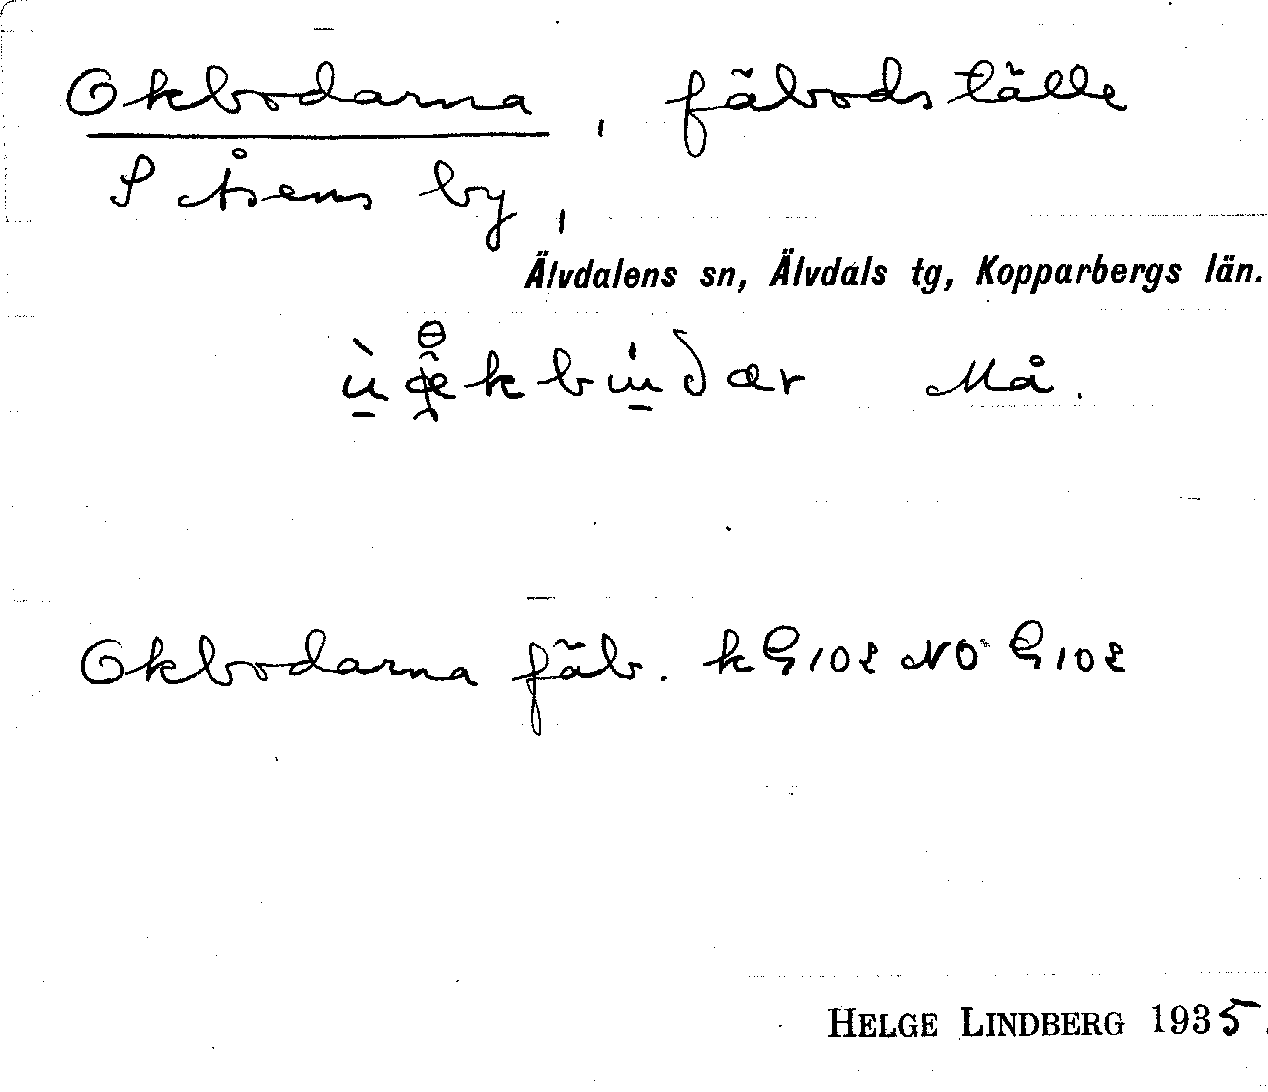 Okbodarna, fäbodställe
S Åsens by,
Älvdalens sn, Älvdals tg, Kopparbergs län.
Må.
Okbodarna fäb. kG102 NO G102
HELGE LINDBERG 1935.